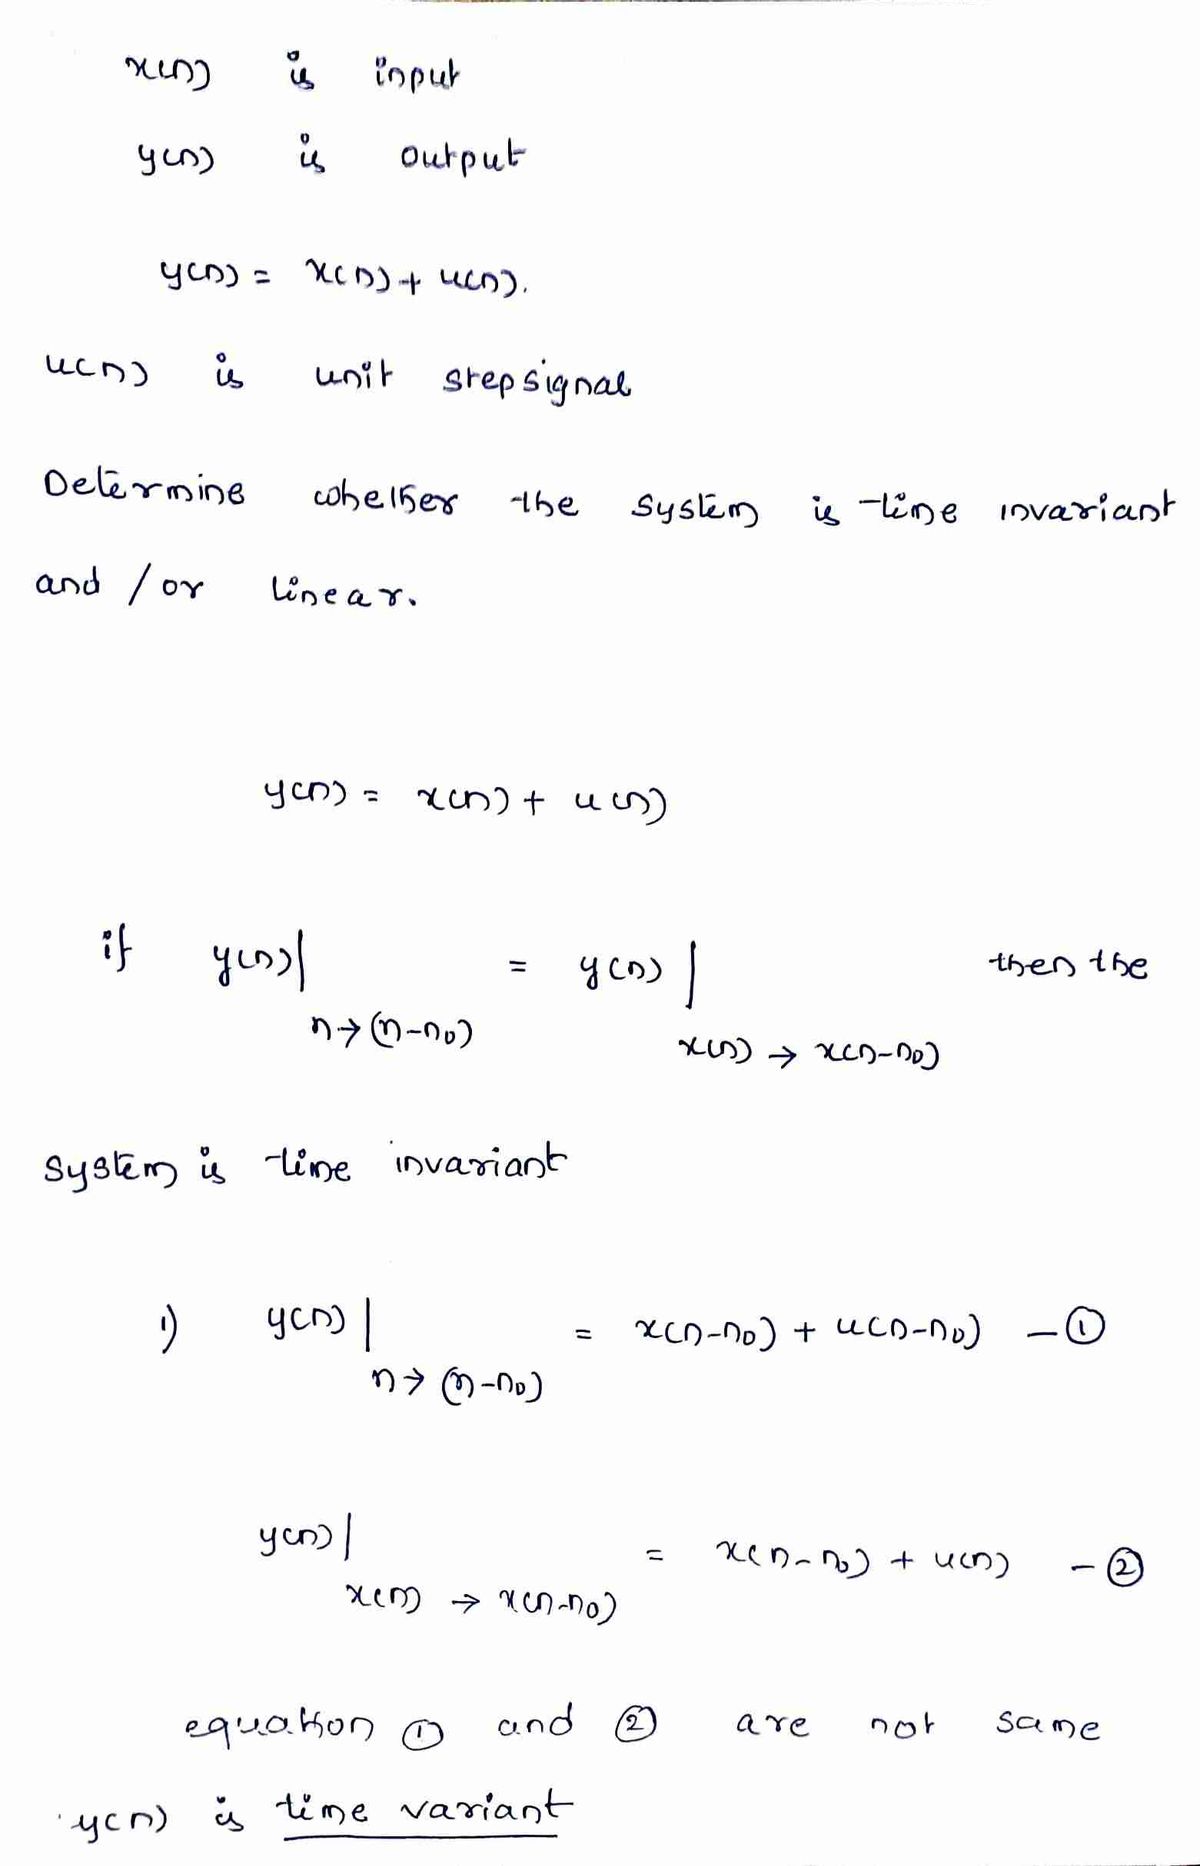 x(n) is input
y(n) is output
y(n) = x(n) + u(n).
u(n) is unit step signal
Determine whether the system is time invariant
and / or linear.
y(n) = x(n) + u(n)
if y(n)| = y(n)| then the
n→(n-n0) x(n) → x(n-n0)
system is time invariant
1) y(n)| = x(n-n0) + u(n-n0) -①
n→(n-n0)
y(n)| = x(n-n0) + u(n) -②
x(n) → x(n-n0)
equation ① and ② are not same
y(n) is time variant